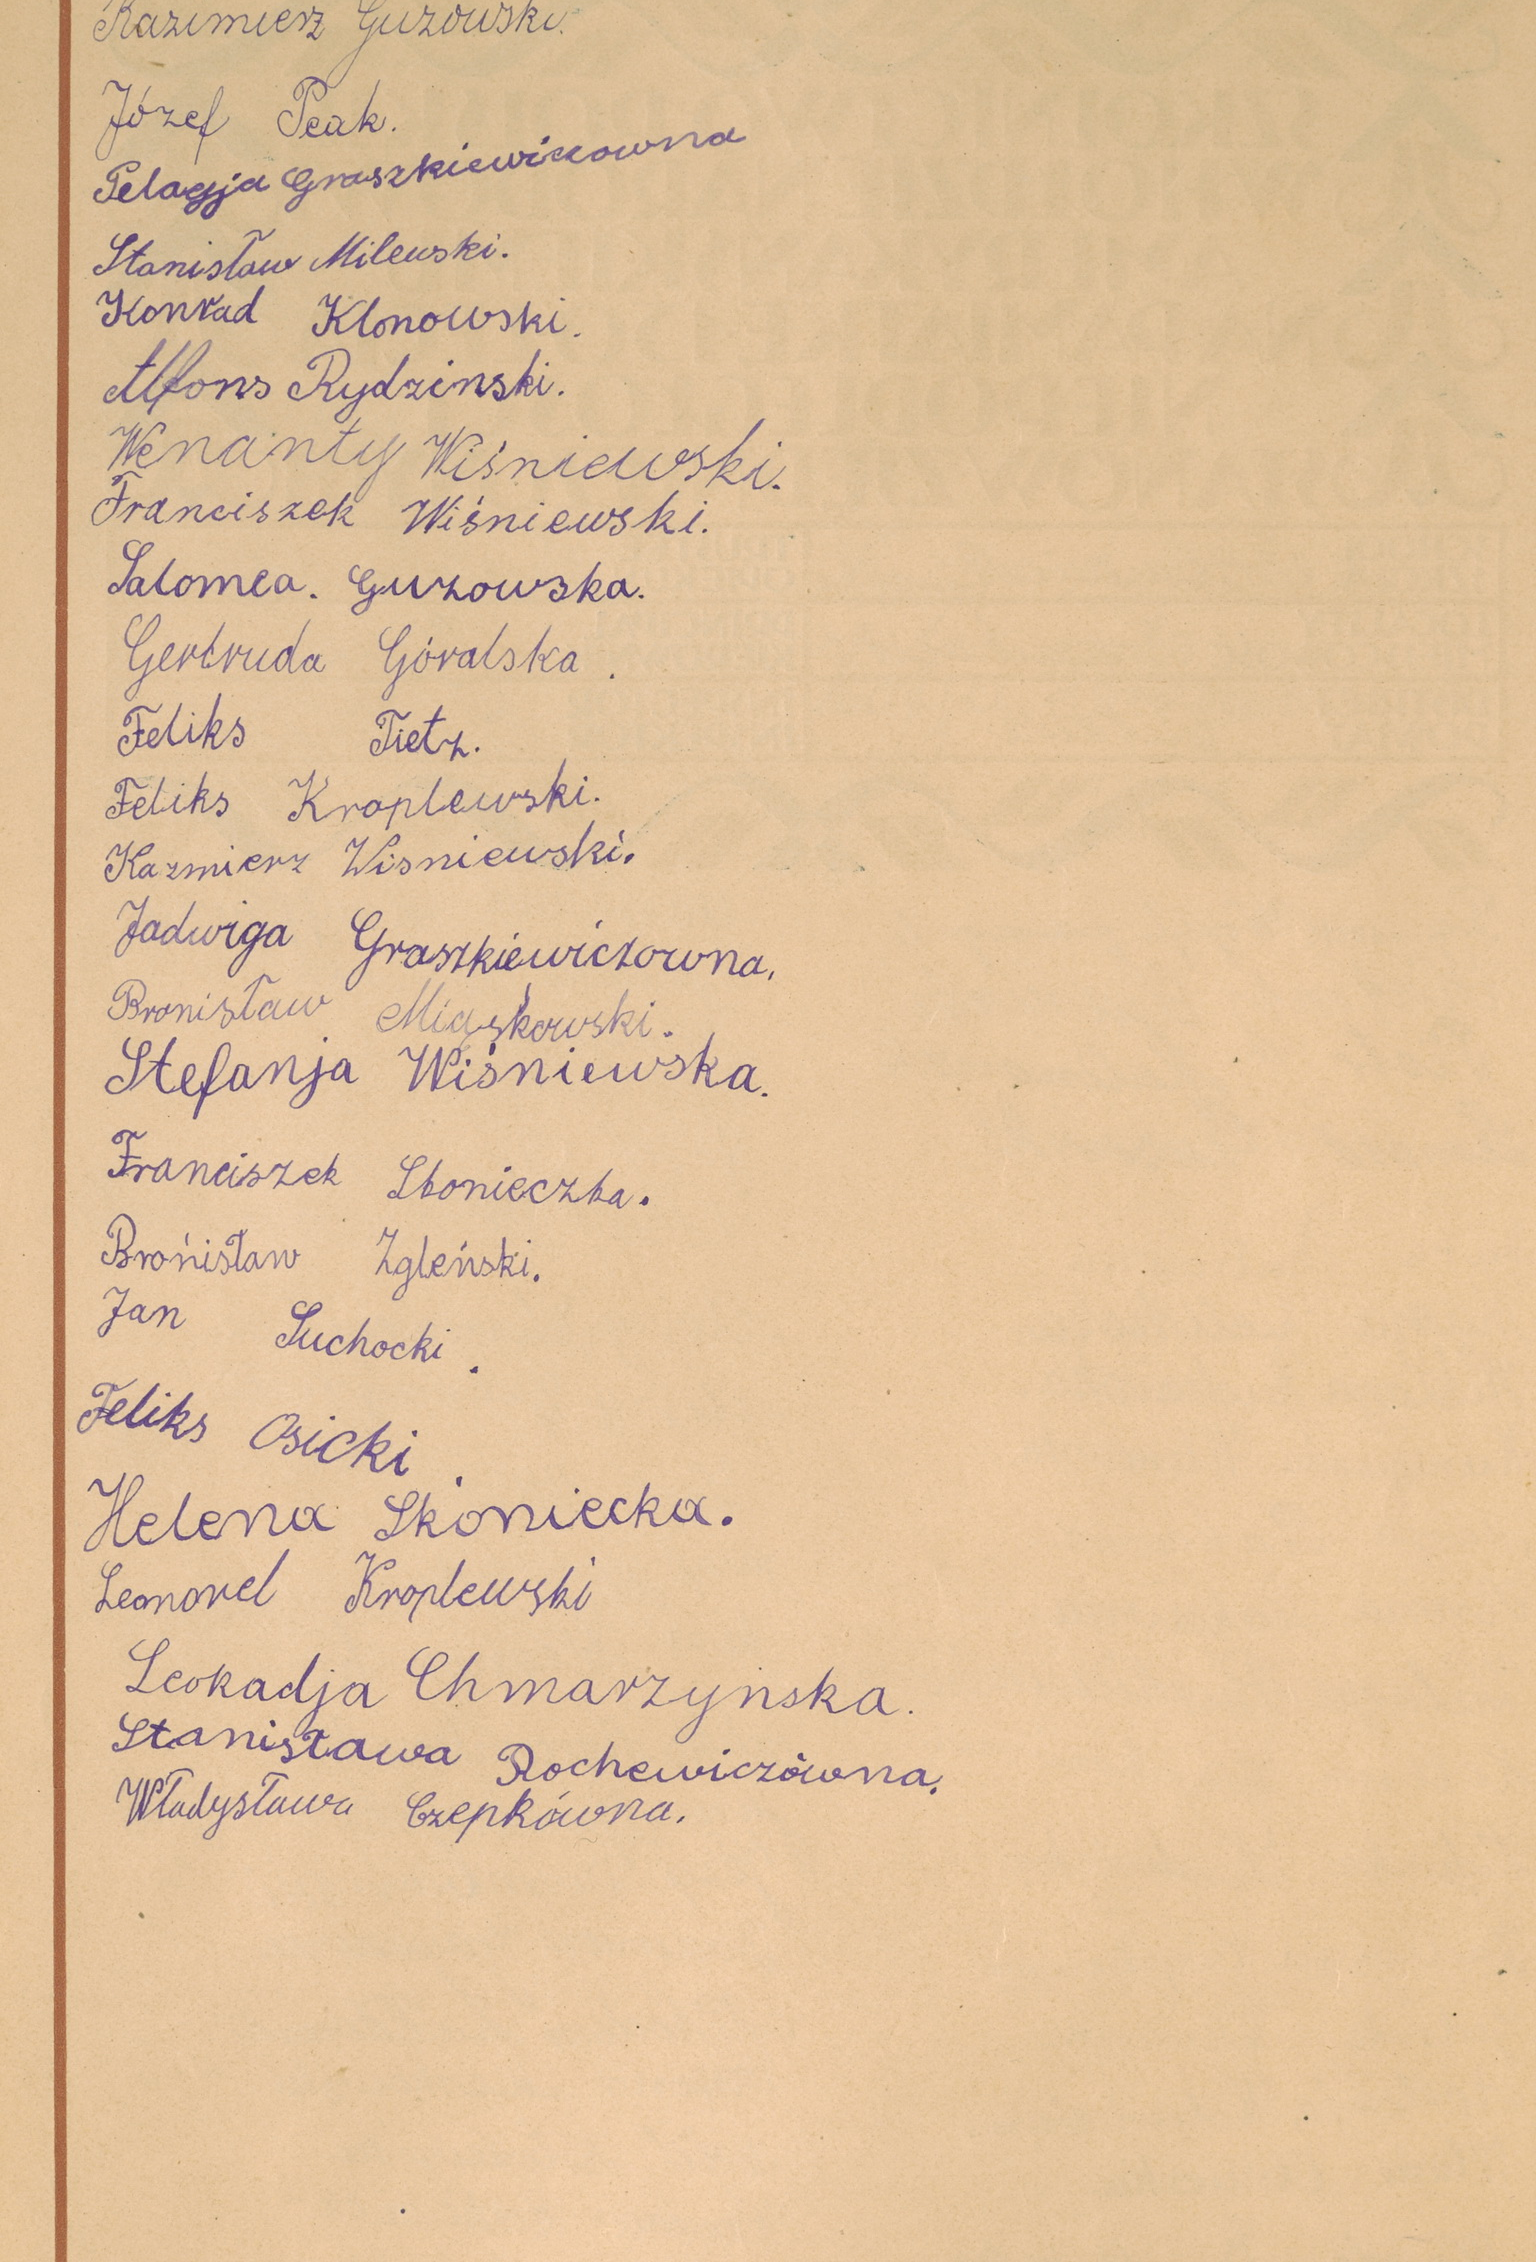 Kazimierz Guzowski.
Józef Peak.
Pelagja Graszkiewiczowna
Stanisław Milewski.
Konrad Klonowski.
Alfons Rydzinski.
Wenanty Wiśniewski.
Franciszek Wiśniewski.
Salomea. Guzowska.
Gertruda Góralska.
Feliks Tietz.
Feliks Kroplewski.
Kazmierz Wisniewski.
Jadwiga Graszkiewiczowna.
Bronisław Miąskowski.
Stefanja Wiśniewska.
Franciszek Skonieczka.
Brońisław Zgleński.
Jan Suchocki.
Feliks Osicki.
Helena Skoniecka.
Leonard Kroplewski
Leokadja Chmarzyńska.
Stanisława Rochewiczówna.
Władysława Czepkówna.